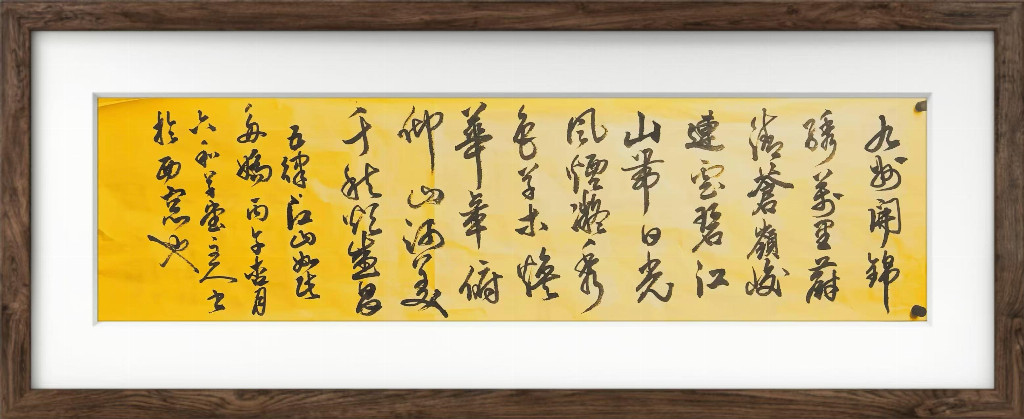 九州開錦
繡萬里蔚
清蒼嶺峻
連雲碧江
山帶日光
風煙凝秀
色草木煥
華章俯
仰山河美
千秋頌盛昌
五律江山如此
多嬌丙午杏月
六和草堂主人書
於西窓也